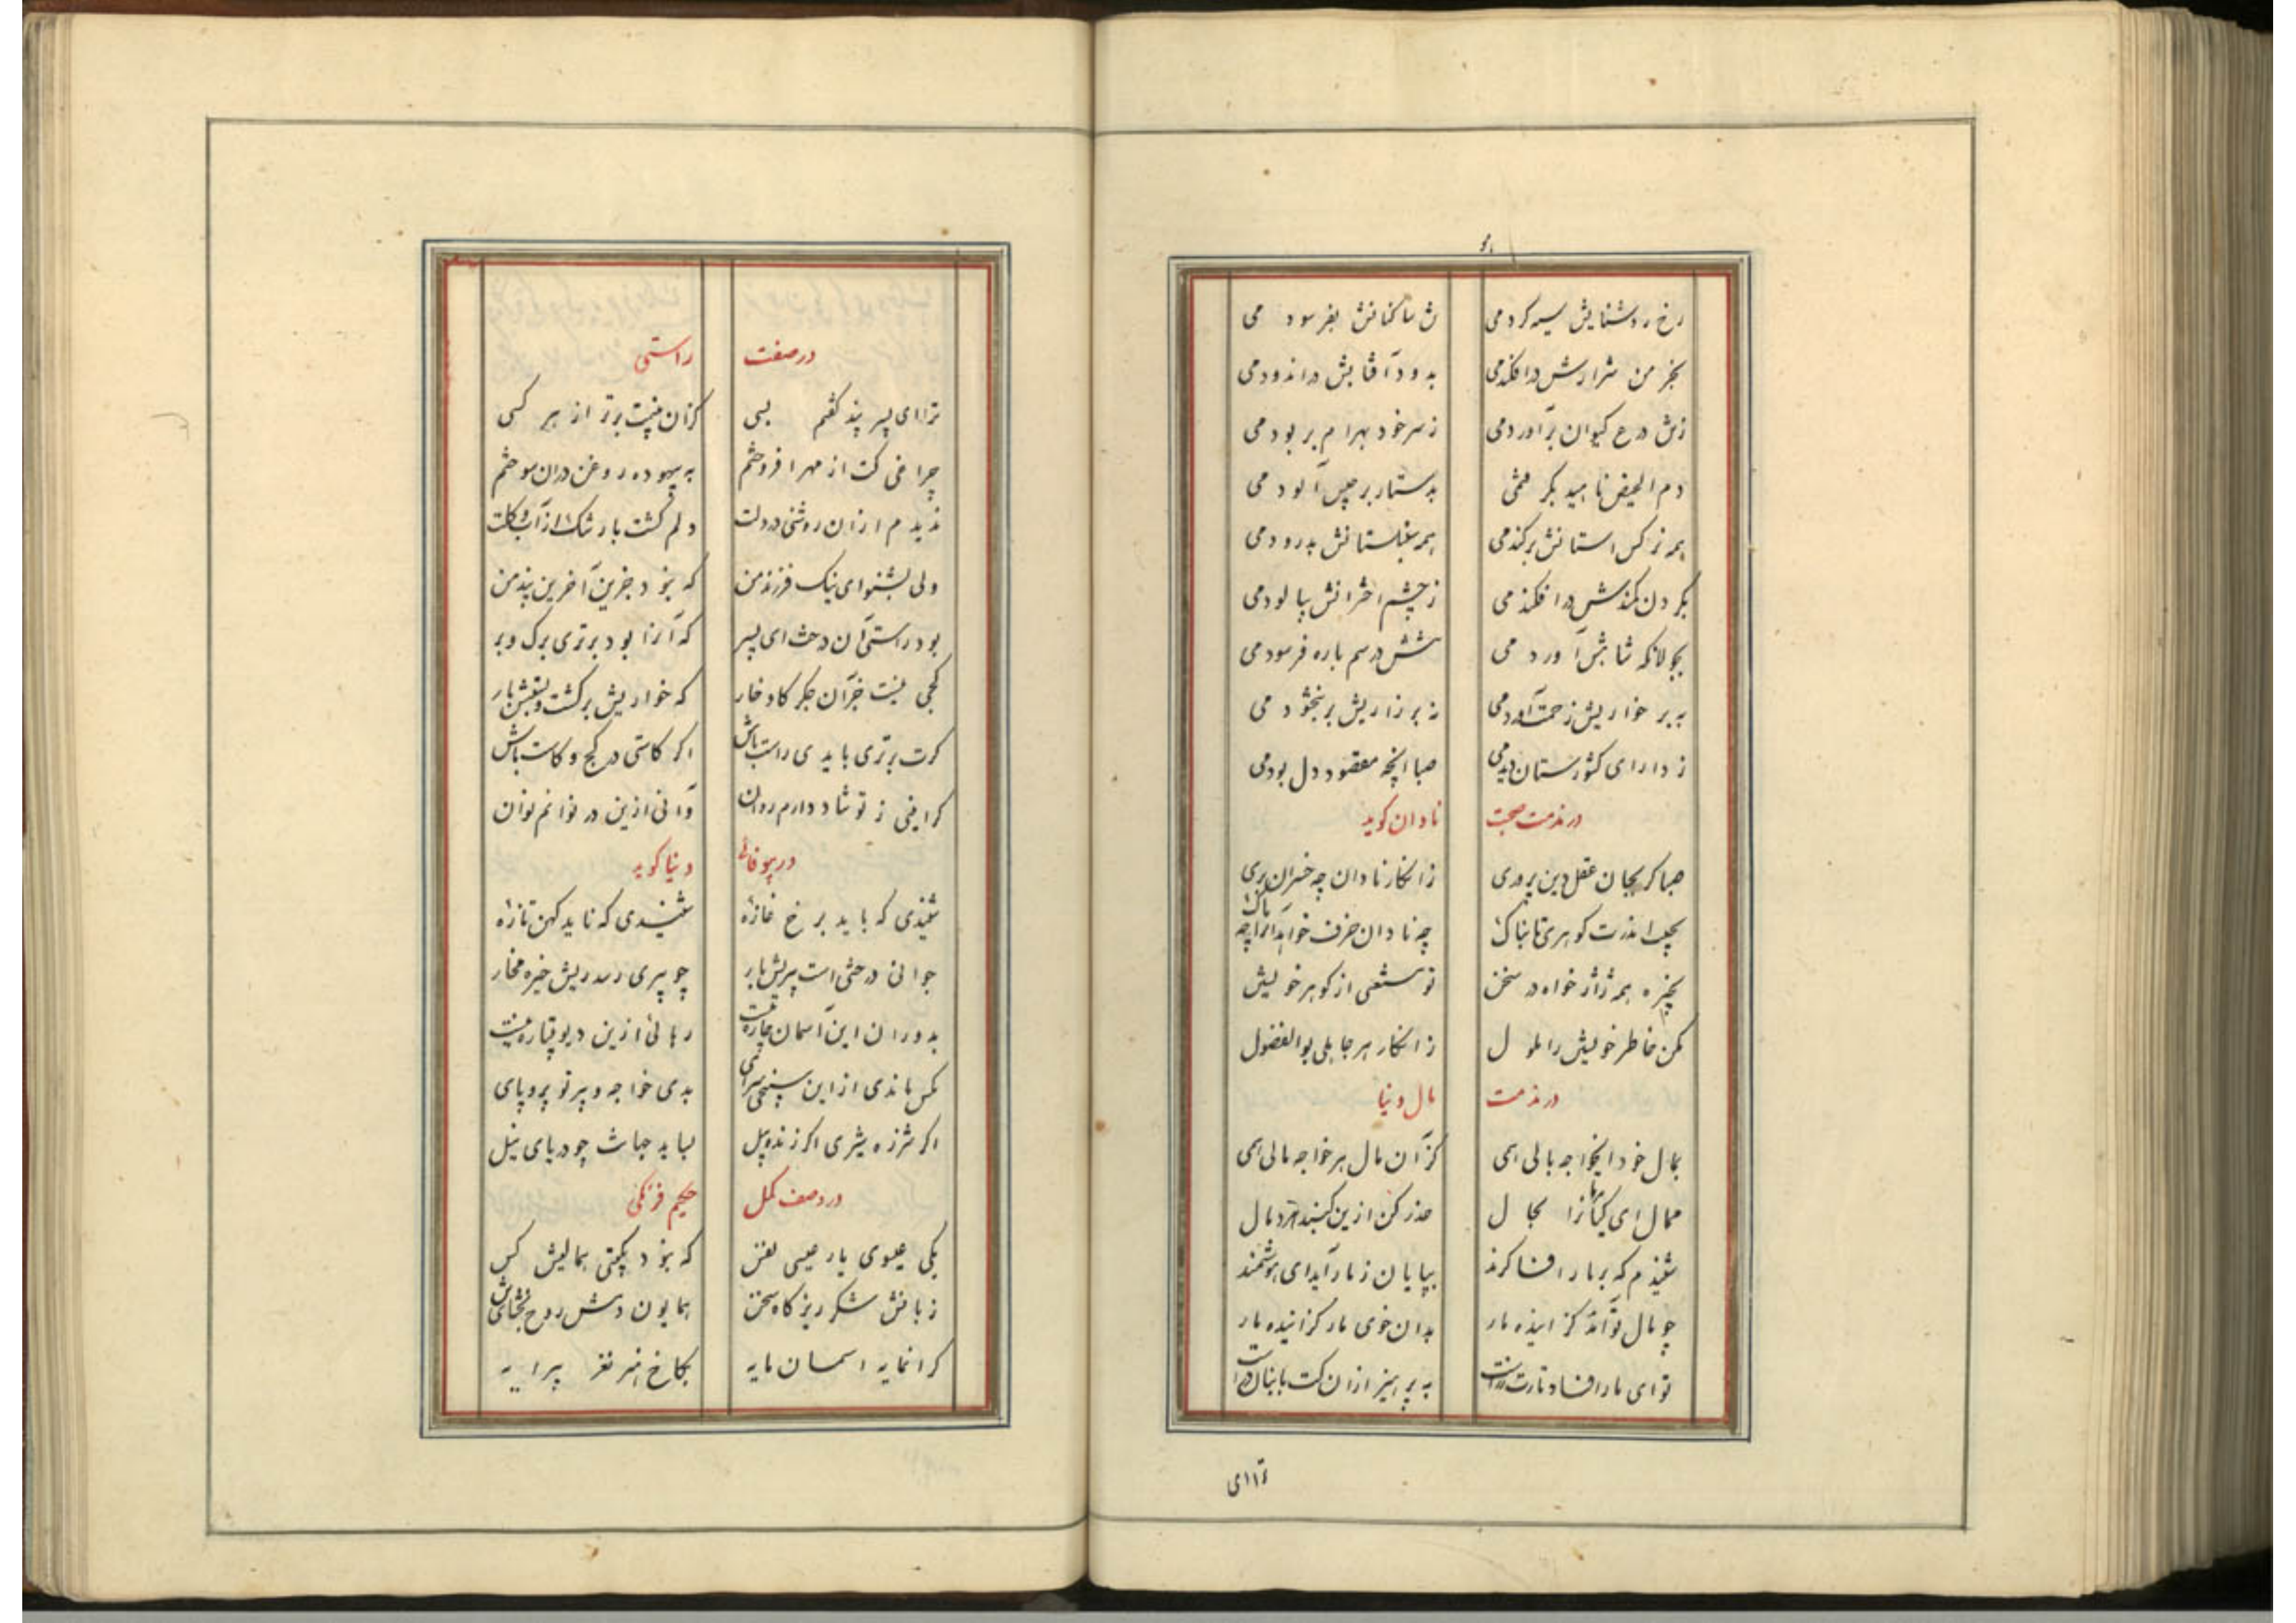 رخ روشنایش سیه کردمی ش ساکنانش بفرسودمی
بخرمن شرارش درافکندمی بدود آفتابش در اندودمی
زش درع کیوان برآوردمی ز سر خود بهرام بربودمی
دم الحیض ناهید بکر فتمی بدستار برجیس آلودمی
همه نرکس استانش برکندمی همه سنبلستانش بدرودمی
بکردن کمندش درافکندمی ز چشم اخترانش بپالودمی
بجولانکه شاتش آوردمی شش در سم باره فرسودمی
به بر خواریش زحمت آوردمی نه بر زاریش بر بنخشودمی
ز دارای کشورستان دیدمی صبا انچه مقصود دل بودمی
در مذمت صحبت نادان کوید
صبا کر بجان عقل دین پروری ز انکار نادان چه خسران بری
بجیب اندرت کوهری تابناک چه نادان خزف خواند آنرا چه باک
بخیره همه ژاژ خواه در سخن تو مستغنی از کوهر خویش
مکن خاطر خویش را ملول ز انکار هر جاهلی بوالفضول
در مذمت مال دنیا
بمال خود ایخواجه بالی همی کز آن مال هر خواجه مالی همی
ممال ای کیا نزا بجال حذر کن ازین کنبد اژدهال
شنیدم که بر مار افسا کزند بپایان ز مار آید ای هوشمند
چو مال تو آمد کزاینده مار بدان خوی مار کزاینده مار
تو ای مار افسا و مارت به پرهیز ازان کت بابنان
تاای
در صفت راستی
ترا ای پسر پند کفتم بسی کزان نیست برتر از هر کسی
چراغی کت از مهر افروختم به بیهوده روغن دران سوختم
ندیدم ازان روشنی در دلت دلم کشت بارشک از آب و کلت
ولی بشنو ای نیک فرزند من که نبود جزین آخرین پند من
بود راستی آن درخت ای پسر که آنرا بود برتری برک و بر
کجی نیست جز آن جکر کاو خار که خواریش برکشت و نفیش بار
کرت برتری باید ی راست باش اکر کاستی در کج و کاست باش
کر اینی ز تو شاد دارم روان وآنی ازین در نوانم نوان
در بیوفائی دنیا کوید
شنیدی که باید برخ غازه شنیدی که ناید کهن تازه
جوانی درختی است پیریش بار چو پیری رسد ریش خیره مخار
بدوران این آسمان چاره نیست رهائی ازین دیو پتیاره نیست
بکس ماندی از این سپنجی سرای بدی خواجه و پیر تو پروپای
اکر شرزه شیری اکر زنده پیل بساید جهانت چو دریای نیل
در وصف کمل حکیم فرنکی
یکی عیسوی یار عیسی نفس که نبود بکیتی همالیش کس
زبانش شکر ریز کاه سخن همایون دمش روح بخشای تن
کرانمایه اسمان مایه بکاخ هنر نغز پیرایه